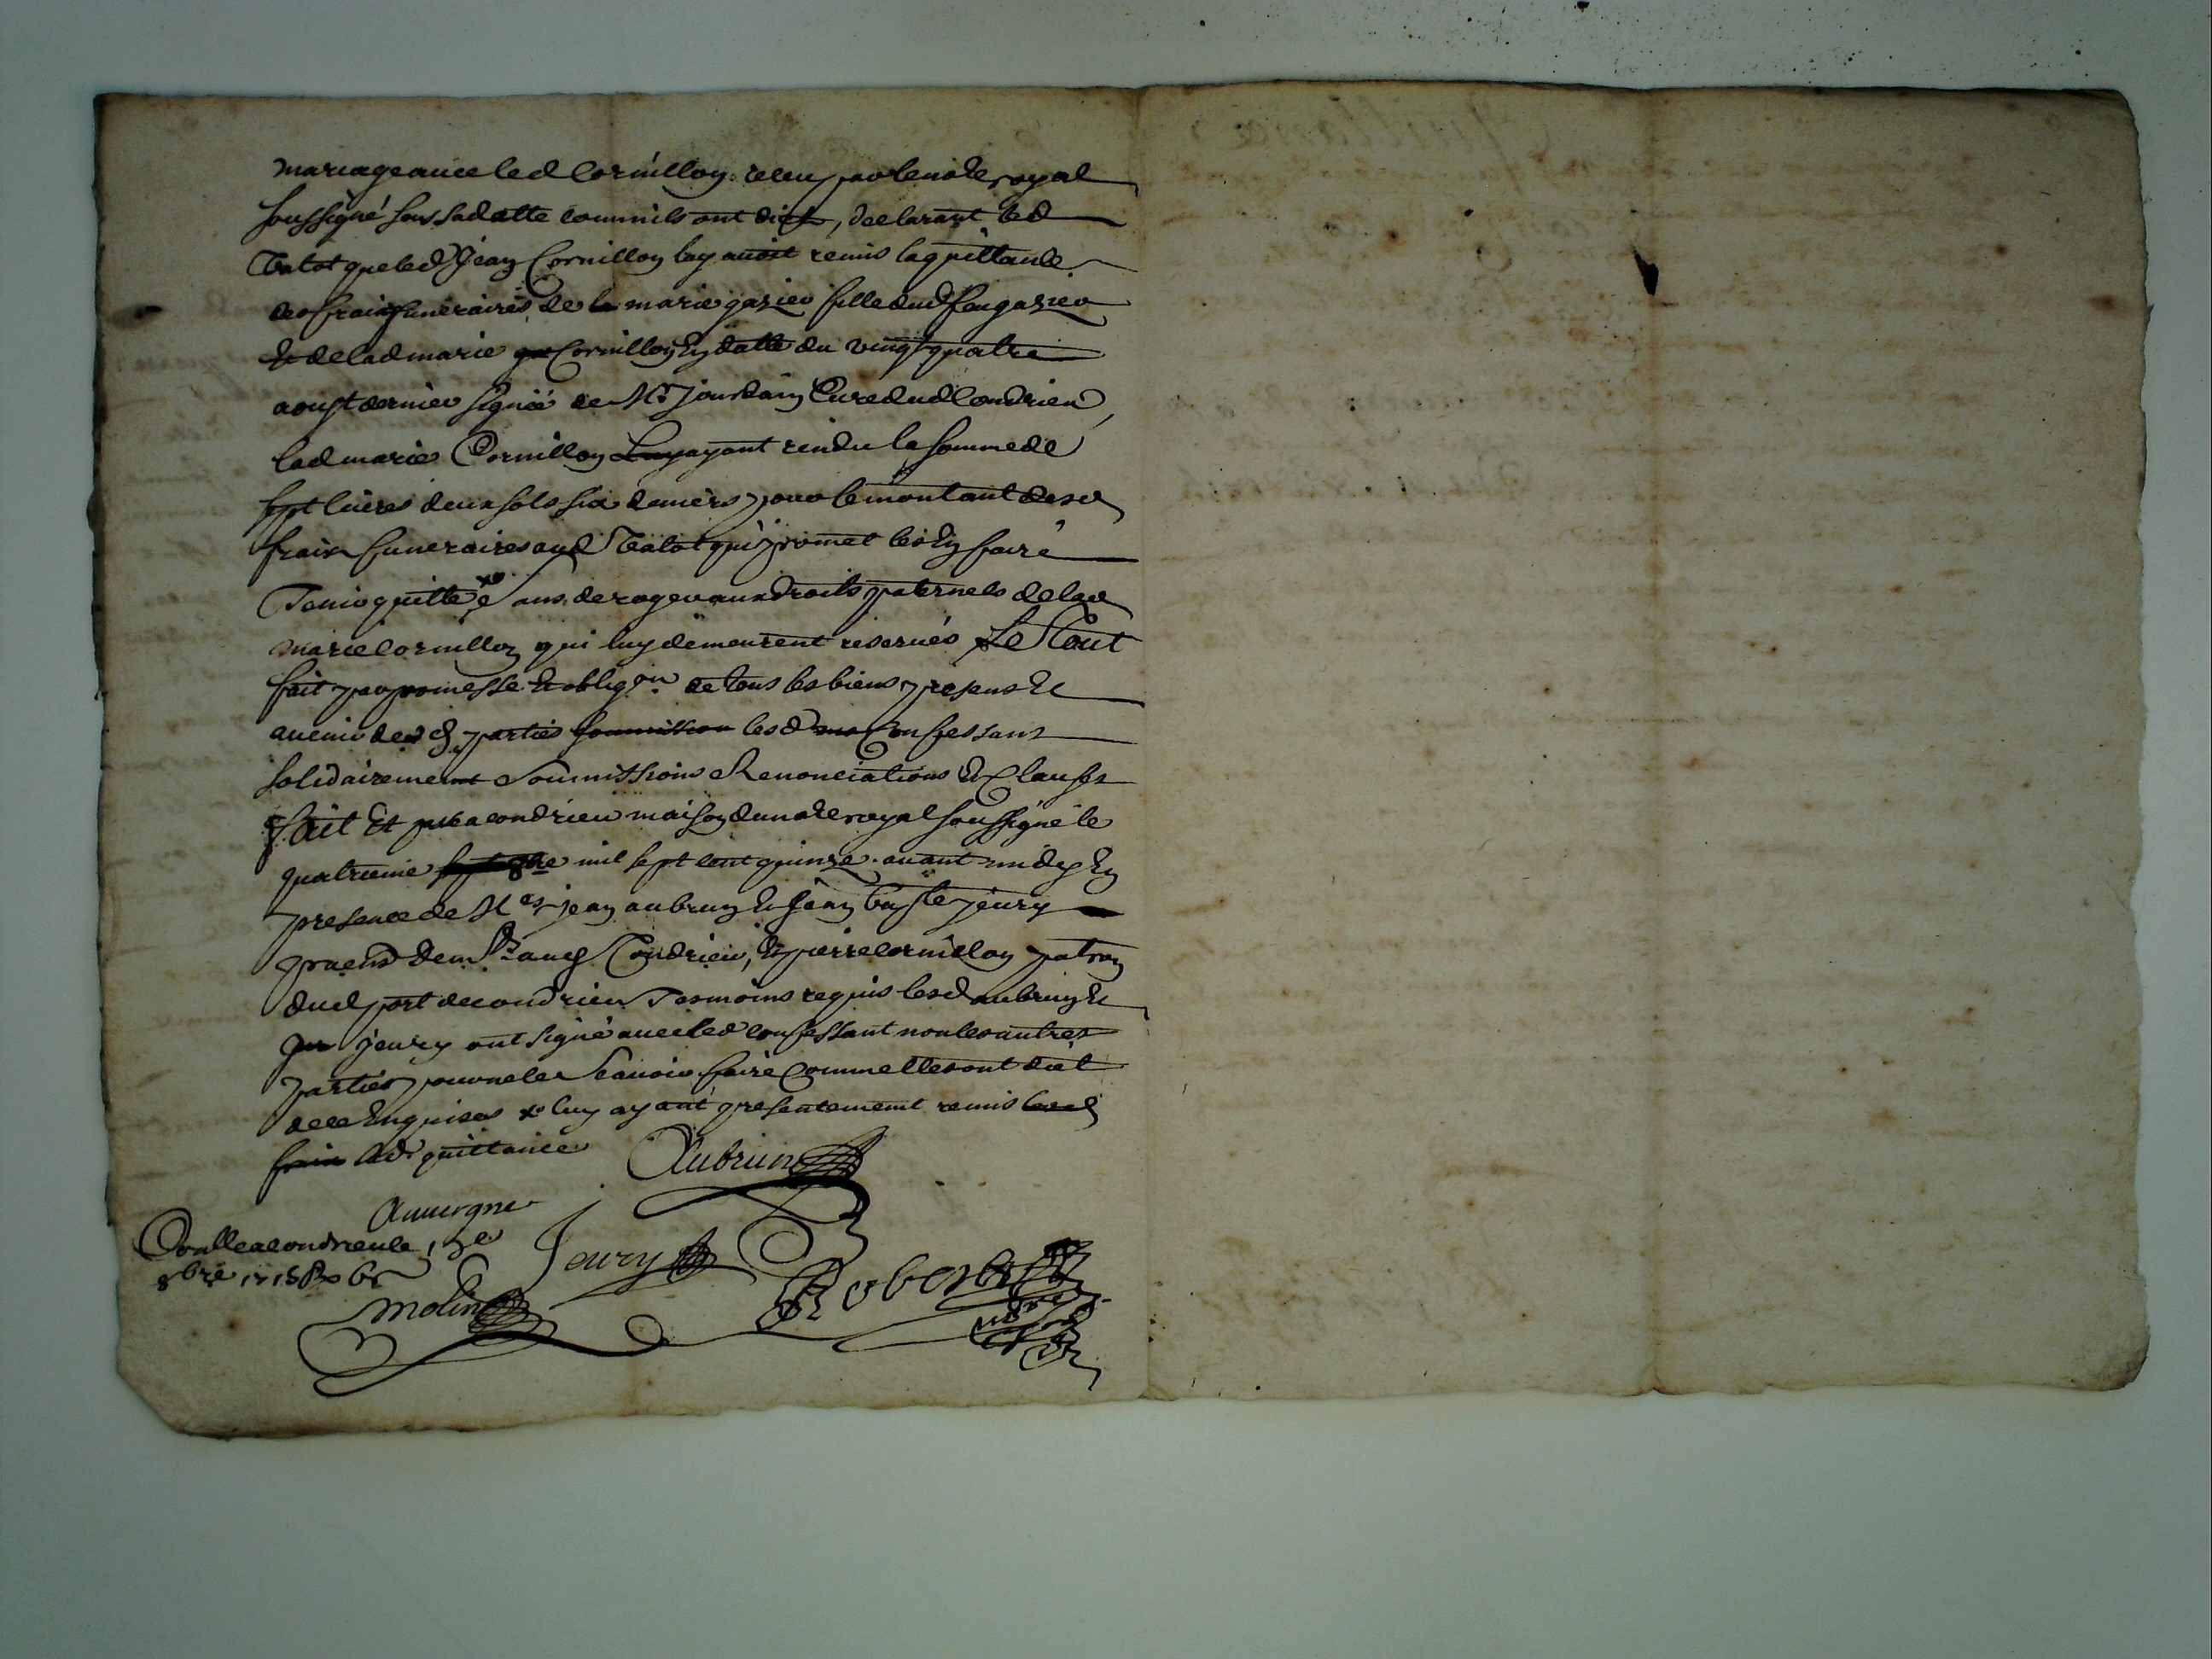 mariage avec led Cornillon receu par le no.re royal
soussigné sous sa datte comm'ils ont dict, declarant led
que led Jean Cornillon luy avoit remis la quittance
des fraix funeraires de la marie gazier fille dud feu gazier
Et de lad marie Cornillon En datte du vingt quatre
aoust dernier signée de Mr Jourdain Curé dud Condrieu
lad marie Cornillon Luy ayant rendu la somme de
sept livres deux sols six deniers pour le montant desd
fraix funeraires aud qui promet les En faire
Tenir quitte xo Sans deroger aux droits paternels de lad
marie Cornillon qui luy demeurent reservés Le Tout
fait par promesse Et oblig.on de tous les biens presens Et
avenir desd parties soumission lesd Confessans
solidairement Soumissions Renonciations Et Clauses
fait Et passé a condrieu maison du no.re royal soussigné le
quatrieme 8bre mil sept cent quinze avant midy En
presence de Mes jean aubrun Et Jean bap.te jeury
praens demts aud Condrieu, Et pierre cornillon patron
dud port de condrieu Tesmoins requis lesd aubrun Et
jeury ont signé avec led confessant non les autres
parties pour ne le Scavoir faire Comm'elles ont dict
de ce Enquises xo luy ayant presentement remis lesd
fraix lad quittance
Aubrun
Auvergne
Conlle a condrieu le 13e
8bre 1715 Ro 6s
Jeury
Molin
Robert